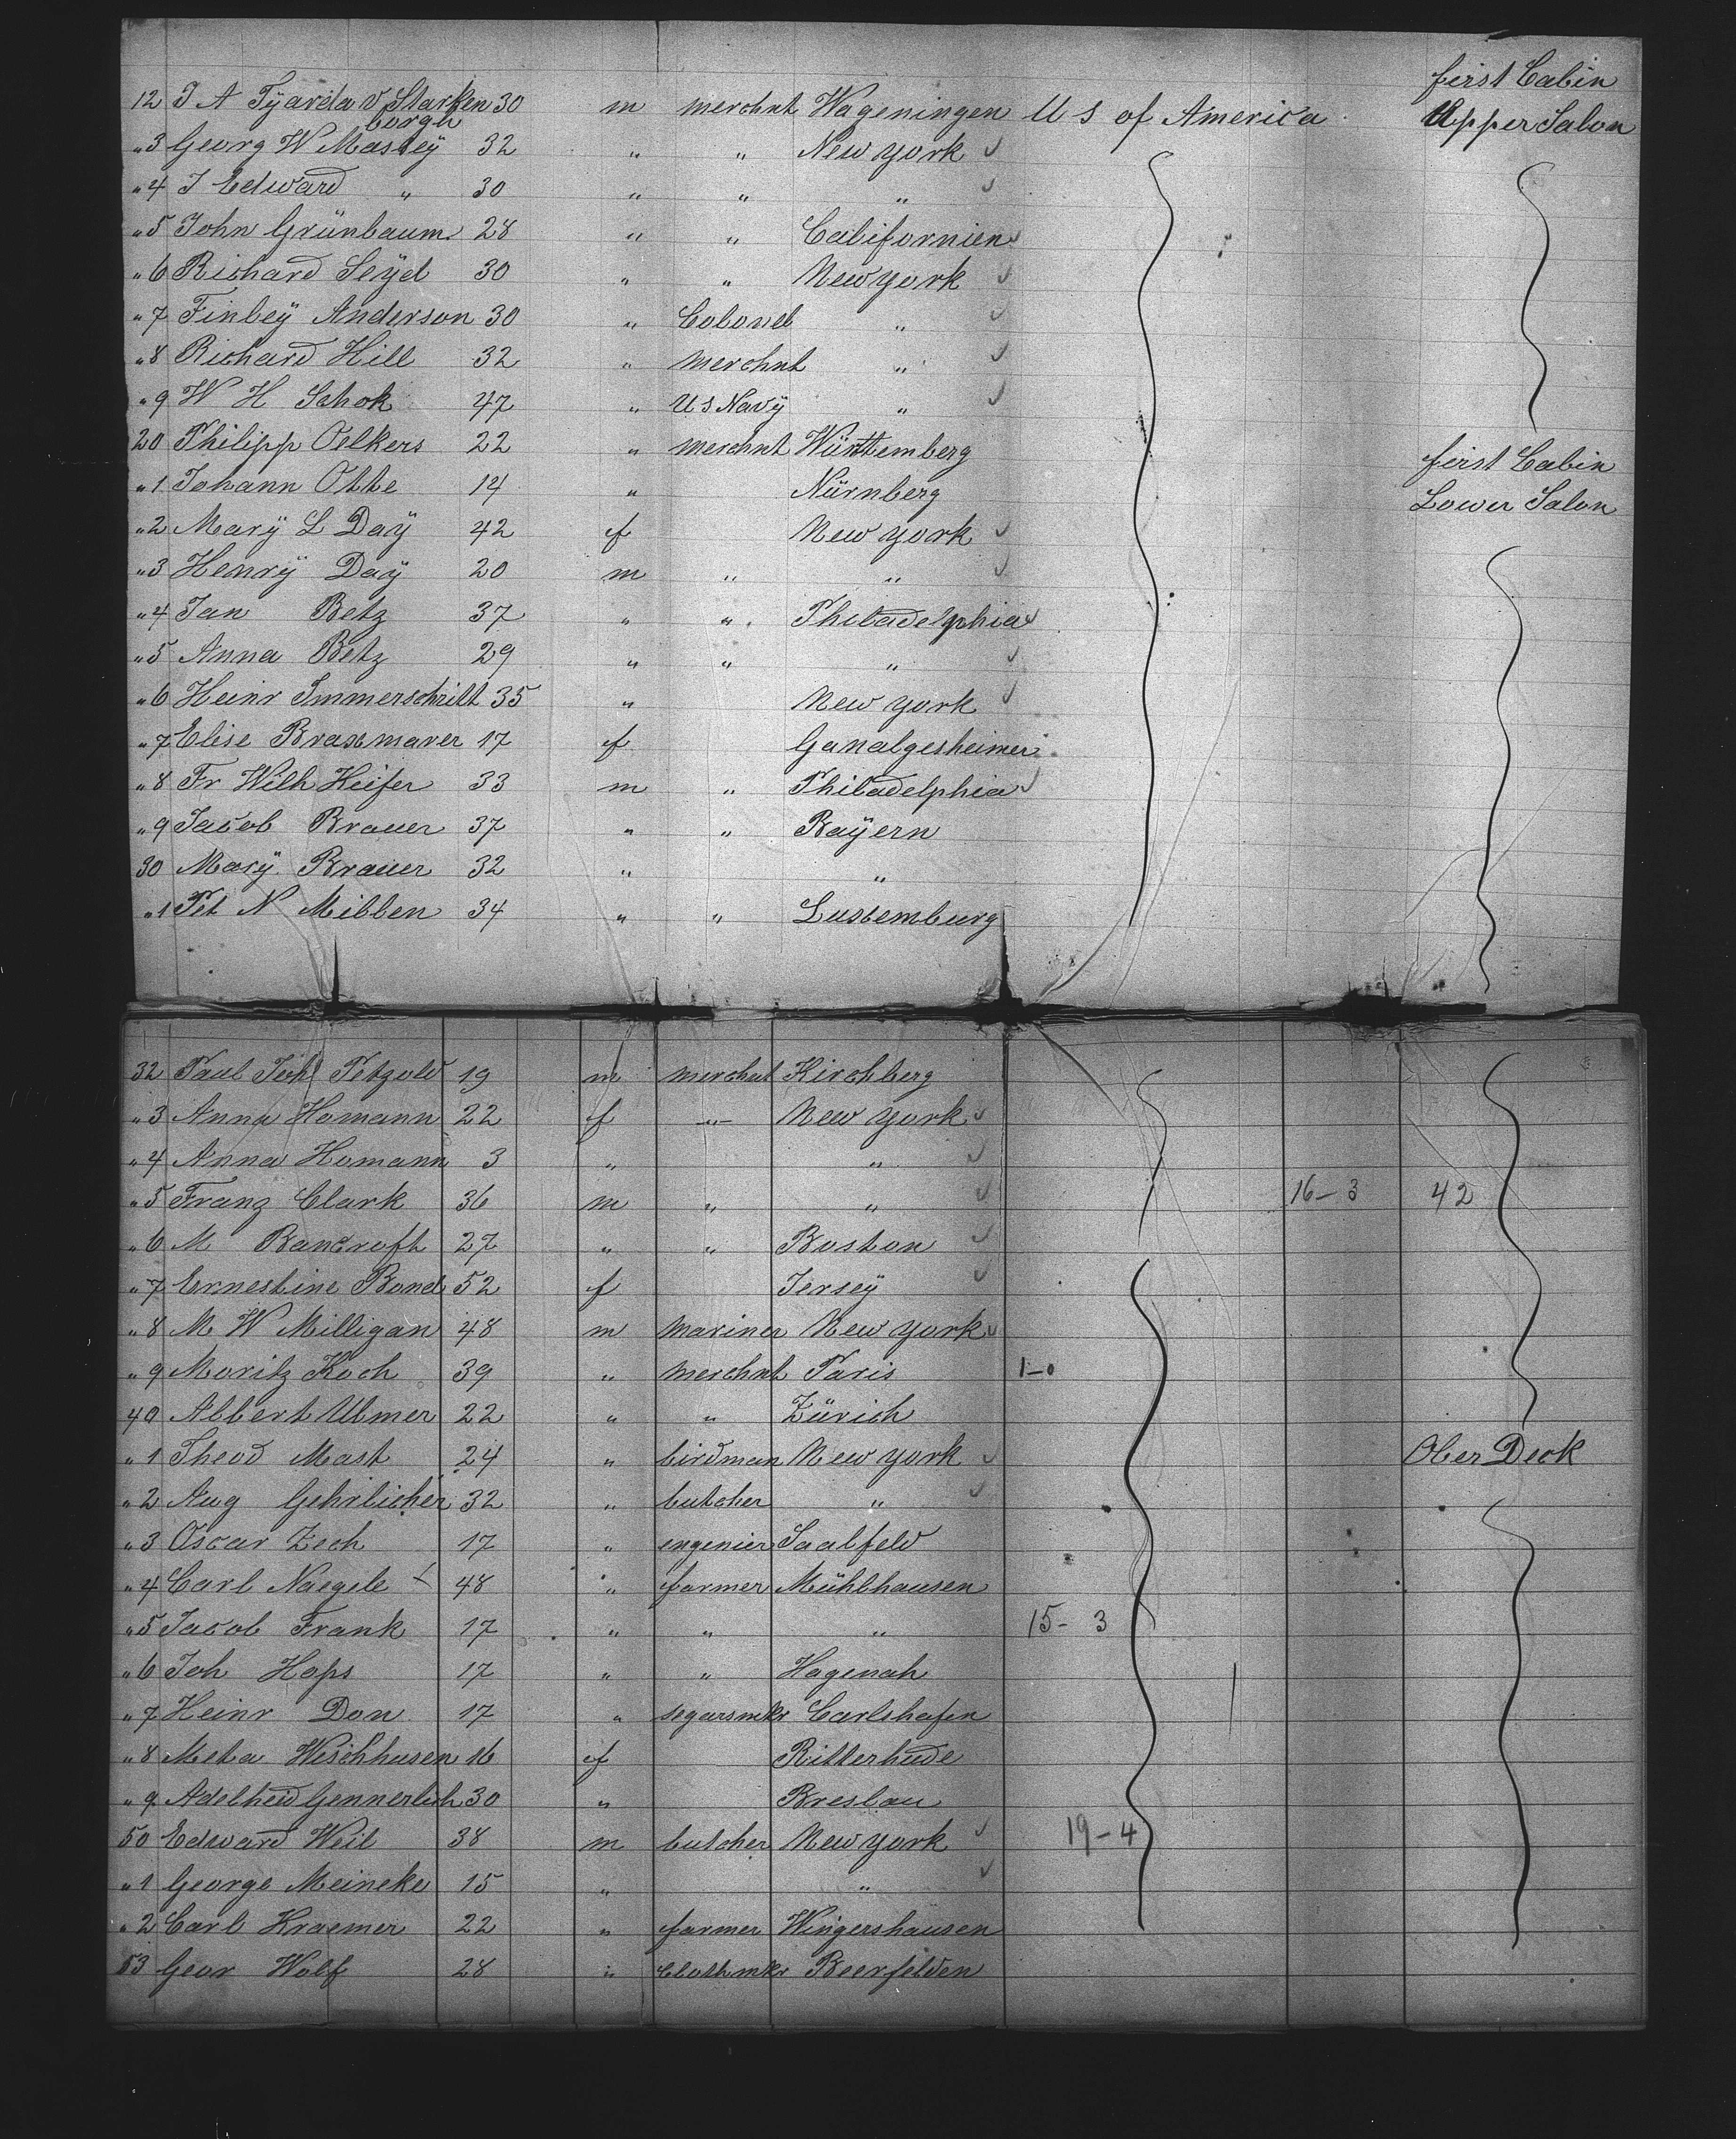 first Cabin
12 J A Tÿarda v Starken 30 m merchnt Wageningen U S of America Upper Salon
borgh
"3 Georg W Massey 32 " " New York
"4 J Edward " 30 " " "
"5 John Grünbaum 28 " " Californien
"6 Richard Seÿd 30 " " New York
"7 Finleÿ Anderson 30 " Colonel "
"8 Richard Hill 32 " merchnt "
"9 W H Schok 47 " U S Navÿ "
20 Philipp Oelkers 22 " merchnt Württemberg first Cabin
"1 Johann Otte 14 " Nürnberg Lower Salon
"2 Marÿ L Daÿ 42 f New York
"3 Henrÿ Daÿ 20 m " "
"4 Jan Betz 37 " " Philadelphia
"5 Anna Betz 29 " " "
"6 Heinr Immerschitt 35 " New York
"7 Elise 17 f
"8 Fr Wilh Keifer 33 m " Philadelphia
"9 Jacob Brauer 37 " " Baÿern
30 Marÿ Brauer 32 " "
"1 Pet N Millen 34 " " Luxemburg
32 Paul Joh Petzold 19 m merchnt Kirchberg
"3 Anna Homann 22 f -"- New York
"4 Anna Homann 3 " "
"5 Franz Clark 36 m " " 16-3 42
"6 M Bancroft 27 " " Boston
"7 Ernestine Bond 52 f Jerseÿ
"8 M W Milligan 48 m mariner New York
"9 Moritz Koch 39 " merchnt Paris 1-0
40 Albert Ulmer 22 " " Zürich
"1 Theod Mast 24 " birdman New York Ober Deck
"2 Aug Gehrlicher 32 " butcher "
"3 Oscar Zech 17 " engenier Saalfeld
"4 Carl Naegele 48 " farmer Mühlhausen
"5 Jacob Frank 17 " " " 15-3
"6 Joh Hops 17 " " Hagenah
"7 Heinr Don 17 " segarsmkr Carlshafen
"8 Meta Wischhusen 16 f Ritterhude
"9 Adelheid Gennerlich 30 " Breslau
50 Edward Weil 38 m butcher New York 19-4
"1 George Meineke 15 " "
"2 Carl Kraemer 22 " farmer Wingershausen
53 Geor Wolf 28 " Clothmkr Beerfelden